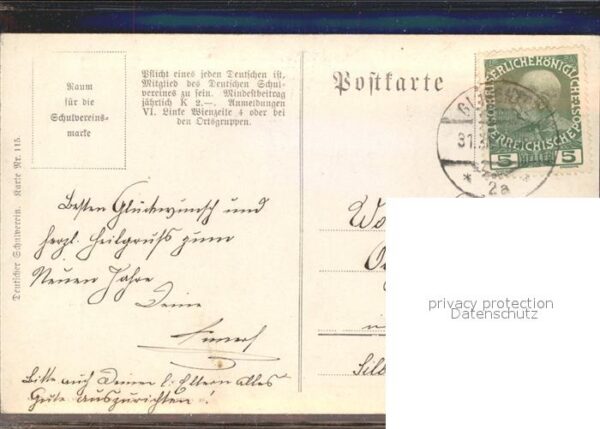 Raum
für die
Schulvereins-
marke
Pflicht eines jeden Deutschen ist,
Mitglied des Deutschen Schul-
vereines zu sein. Mindestbeitrag
jährlich K 2.—. Anmeldungen
VI. Linke Wienzeile 4 oder bei
den Ortsgruppen.
Postkarte
5 HELLER 5
31.
* 2a *
Deutscher Schulverein. Karte Nr. 115.
Besten Glückwunsch und
herzl. Heilgruß zum
Neuen Jahre
Deine
Bitte auch Deinen l. Eltern alles
Gute auszurichten!
privacy protection
Datenschutz